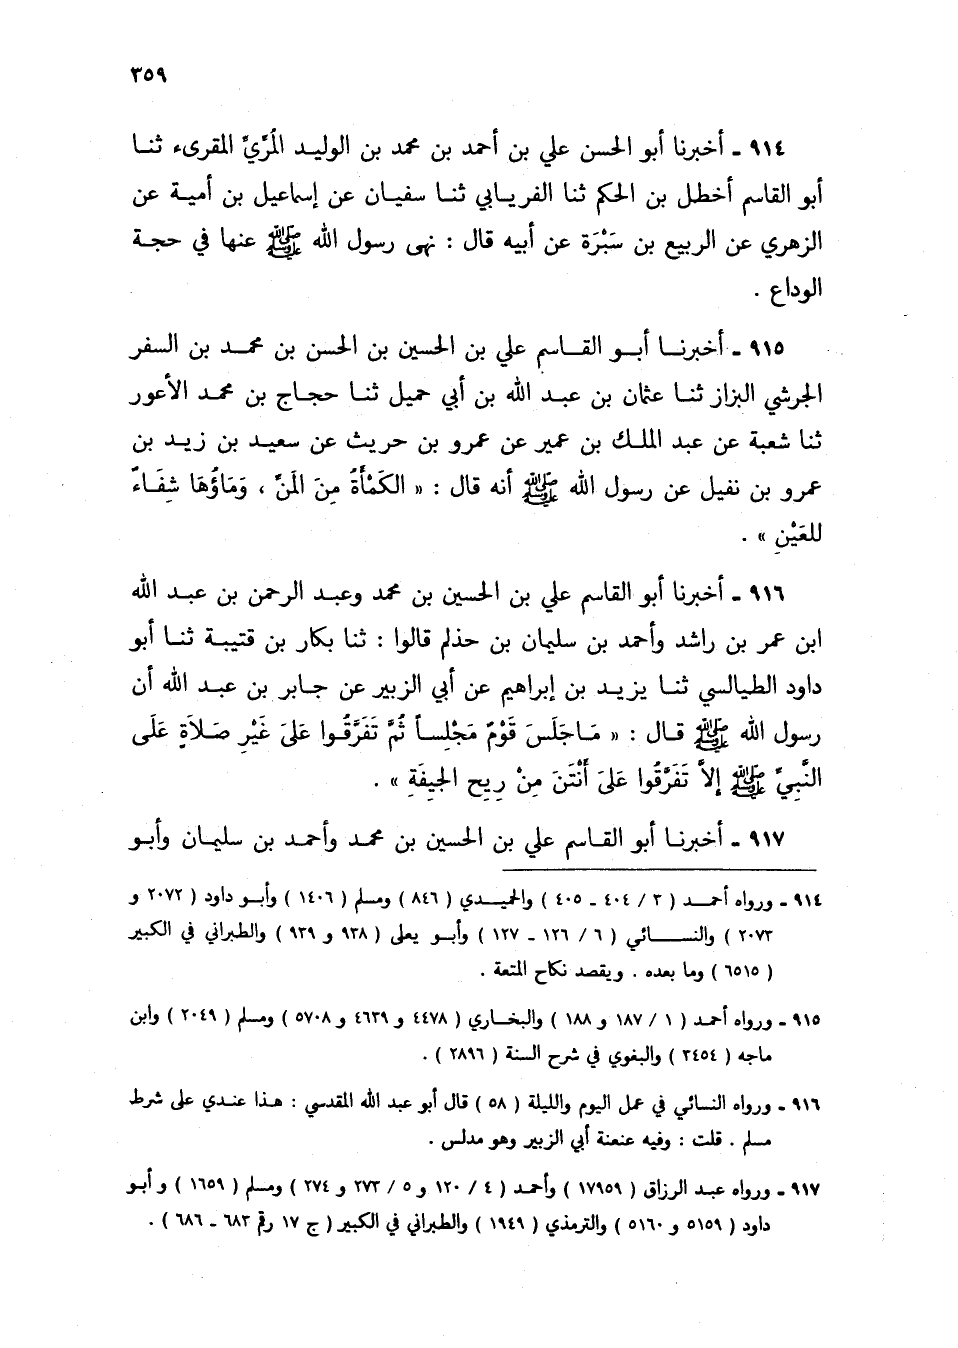 ٣٥٩
٩١٤ ـ أخبرنا أبو الحسن علي بن أحمد بن محمد بن الوليد المُرِّيِّ المقرىء ثنا
أبو القاسم أخطل بن الحكم ثنا الفريابي ثنا سفيان عن إسماعيل بن أمية عن
الزهري عن الربيع بن سَبْرَة عن أبيه قال : نهى رسول الله ﷺ عنها في حجة
الوداع .
٩١٥ ـ أخبرنا أبو القاسم علي بن الحسين بن الحسن بن محمد بن السفر
الجرشي البزاز ثنا عثمان بن عبد الله بن أبي جميل ثنا حجاج بن محمد الأعور
ثنا شعبة عن عبد الملك بن عمير عن عمرو بن حريث عن سعيد بن زيد بن
عمرو بن نفيل عن رسول الله ﷺ أنه قال : « الكَمْأَةُ مِنَ المَنِّ ، وَمَاؤُهَا شِفَاءٌ
للعَيْنِ » .
٩١٦ ـ أخبرنا أبو القاسم علي بن الحسين بن محمد وعبد الرحمن بن عبد الله
ابن عمر بن راشد وأحمد بن سليمان بن حذلم قالوا : ثنا بكار بن قتيبة ثنا أبو
داود الطيالسي ثنا يزيد بن إبراهيم عن أبي الزبير عن جابر بن عبد الله أن
رسول الله ﷺ قال : « مَاجَلَسَ قَوْمٌ مَجْلِساً ثُمَّ تَفَرَّقُوا عَلىَ غَيْرِ صَلاَةٍ عَلَى
النَّبِيِّ ﷺ إِلاَّ تَفَرَّقُوا عَلىَ أَنْتَنَ مِنْ رِيحِ الجِيفَةِ » .
٩١٧ ـ أخبرنا أبو القاسم علي بن الحسين بن محمد وأحمد بن سليمان وأبو
٩١٤ ـ ورواه أحمد ( ٣ / ٤٠٤ ـ ٤٠٥ ) والحميدي ( ٨٤٦ ) ومسلم ( ١٤٠٦ ) وأبو داود ( ٢٠٧٢ و
٢٠٧٣ ) والنسائي ( ٦ / ١٢٦ ـ ١٢٧ ) وأبو يعلى ( ٩٣٨ و ٩٣٩ ) والطبراني في الكبير
( ٦٥١٥ ) وما بعده . ويقصد نكاح المتعة .
٩١٥ ـ ورواه أحمد ( ١ / ١٨٧ و ١٨٨ ) والبخاري ( ٤٤٧٨ و ٤٦٣٩ و ٥٧٠٨ ) ومسلم ( ٢٠٤٩ ) وابن
ماجه ( ٣٤٥٤ ) والبغوي في شرح السنة ( ٢٨٩٦ ) .
٩١٦ ـ ورواه النسائي في عمل اليوم والليلة ( ٥٨ ) قال أبو عبد الله المقدسي : هذا عندي على شرط
مسلم . قلت : وفيه عنعنة أبي الزبير وهو مدلس .
٩١٧ ـ ورواه عبد الرزاق ( ١٧٩٥٩ ) وأحمد ( ٤ / ١٢٠ و ٥ / ٢٧٣ و ٢٧٤ ) ومسلم ( ١٦٥٩ ) و أبو
داود ( ٥١٥٩ و ٥١٦٠ ) والترمذي ( ١٩٤٩ ) والطبراني في الكبير ( ج ١٧ رقم ٦٨٣ ـ ٦٨٦ ) .